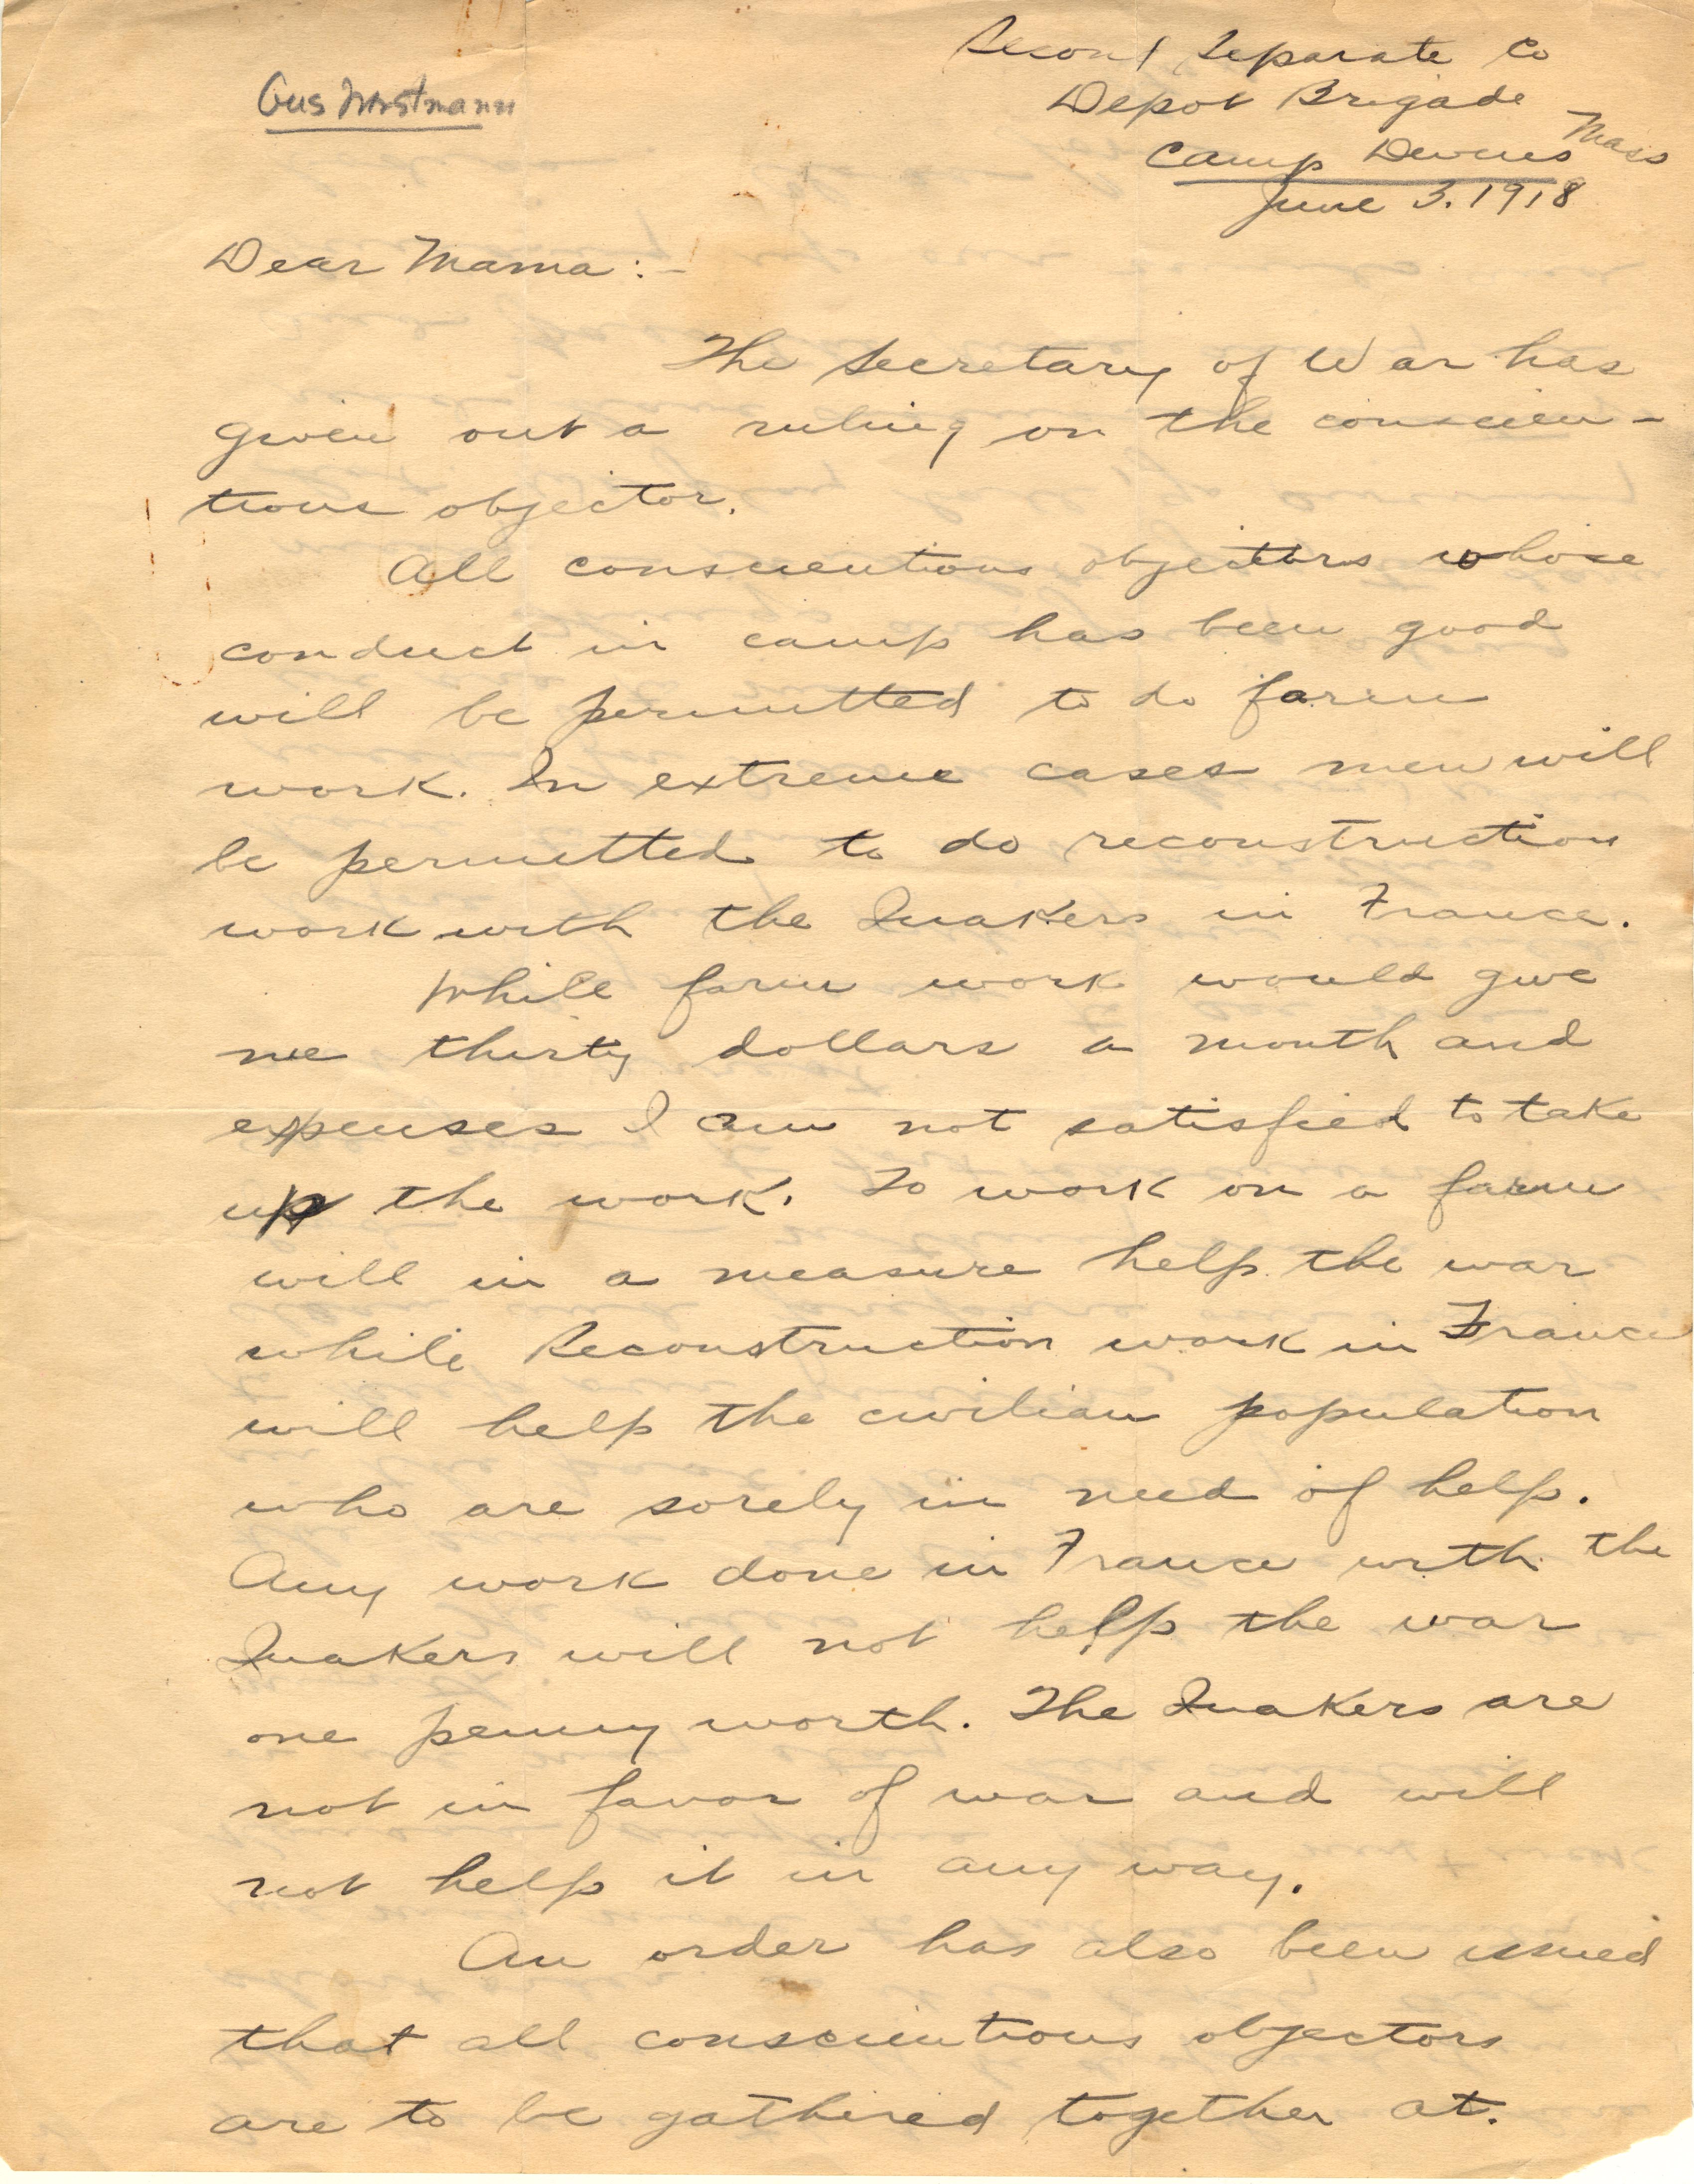 Second Separate Co
Depot Brigade
Camp Devens Mass
June 3. 1918
Gus
Dear Mama:-
The Secretary of War has
given out a ruling on the conscien-
tious objector.
All conscientious objectors whose
conduct in camp has been good
will be permitted to do farm
work. In extreme cases men will
be permitted to do reconstruction
work with the Quakers in France.
While farm work would give
me thirty dollars a month and
expenses I am not satisfied to take
up the work. To work on a farm
will in a measure help the war
while Reconstruction work in France
will help the civilian population
who are sorely in need of help.
Any work done in France with the
Quakers will not help the war
one penny worth. The Quakers are
not in favor of war and will
not help it in any way.
An order has also been issued
that all conscientious objectors
are to be gathered together at.